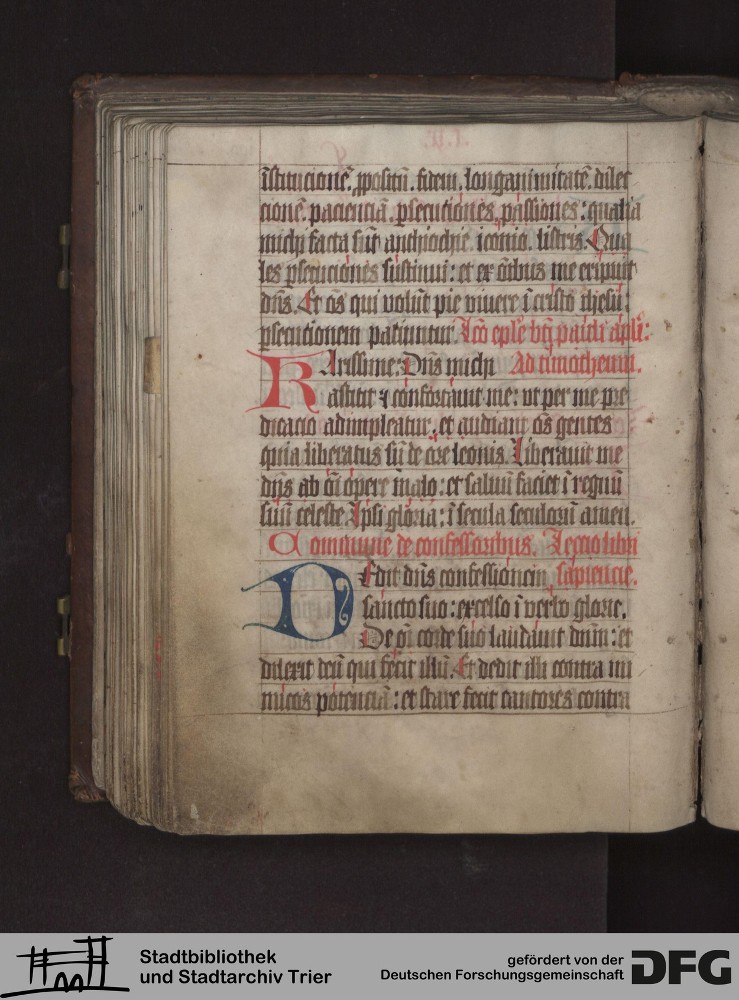 īstitucionē. ꝓpositū. fidem. longanimitatē. dilec
cionē. pacienciā. ꝑsecutiones. passiones: qualia
michi facta sūt anthiochie. iconio. listris. Qua
les ꝑsecuciones sustinui: et ex oībus me eripuit
dn̄s. Et oēs qui volūt pie viuere ī cristo ihesu:
ꝑsecutionem patiuntur. Lc̄o eple bt̄i pauli apli:
Karissime: Dn̄s michi Ad timotheum.
astitit ⁊ confortauit me: vt per me pre
dicacio adimpleatur. et audiant oēs gentes
quia liberatus sū de ore leonis. Liberauit me
dn̄s ab oī opere malo: et saluū faciet ī regnū
suū celeste Ipsi gloria: ī secula seculorū amen.
Commune de confessoribus. Lectio libri
Dedit dn̄s confessionem sapiencie.
sancto suo: excelso ī verbo glorie.
De oī corde suo laudauit dnm̄: et
dilexit deū qui fecit illū. Et dedit illi contra ini
micos potenciā: et stare fecit cantores contra
Stadtbibliothek
und Stadtarchiv Trier
gefördert von der
Deutschen Forschungsgemeinschaft
DFG